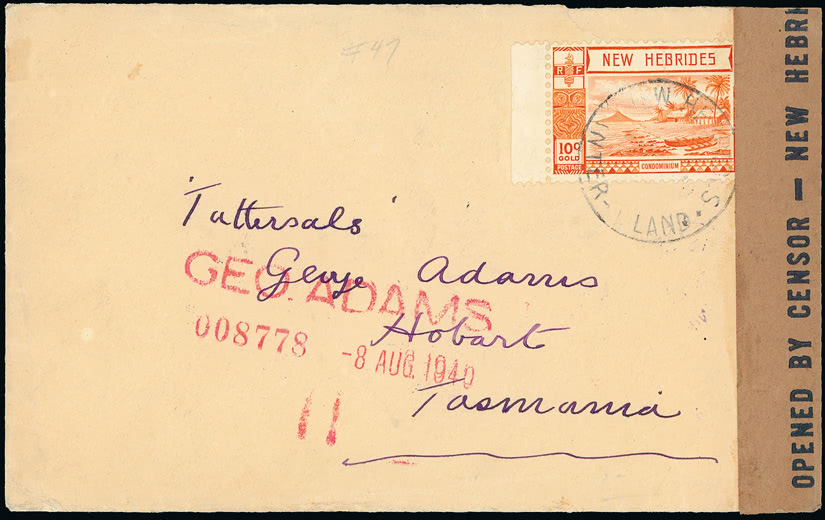 #47
NEW HEBRIDES
RF
10c
GOLD
POSTAGE
CONDOMINIUM
INTER- LAND
'Tattersals'
George Adams
Hobart
Tasmania
GEO. ADAMS
008778
-8 AUG. 1940
OPENED BY CENSOR — NEW HEBRI